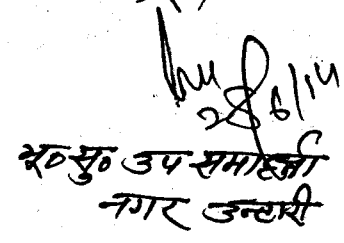 28/6/14
भू० सु० उप समाहर्त्ता
नगर उन्टारी